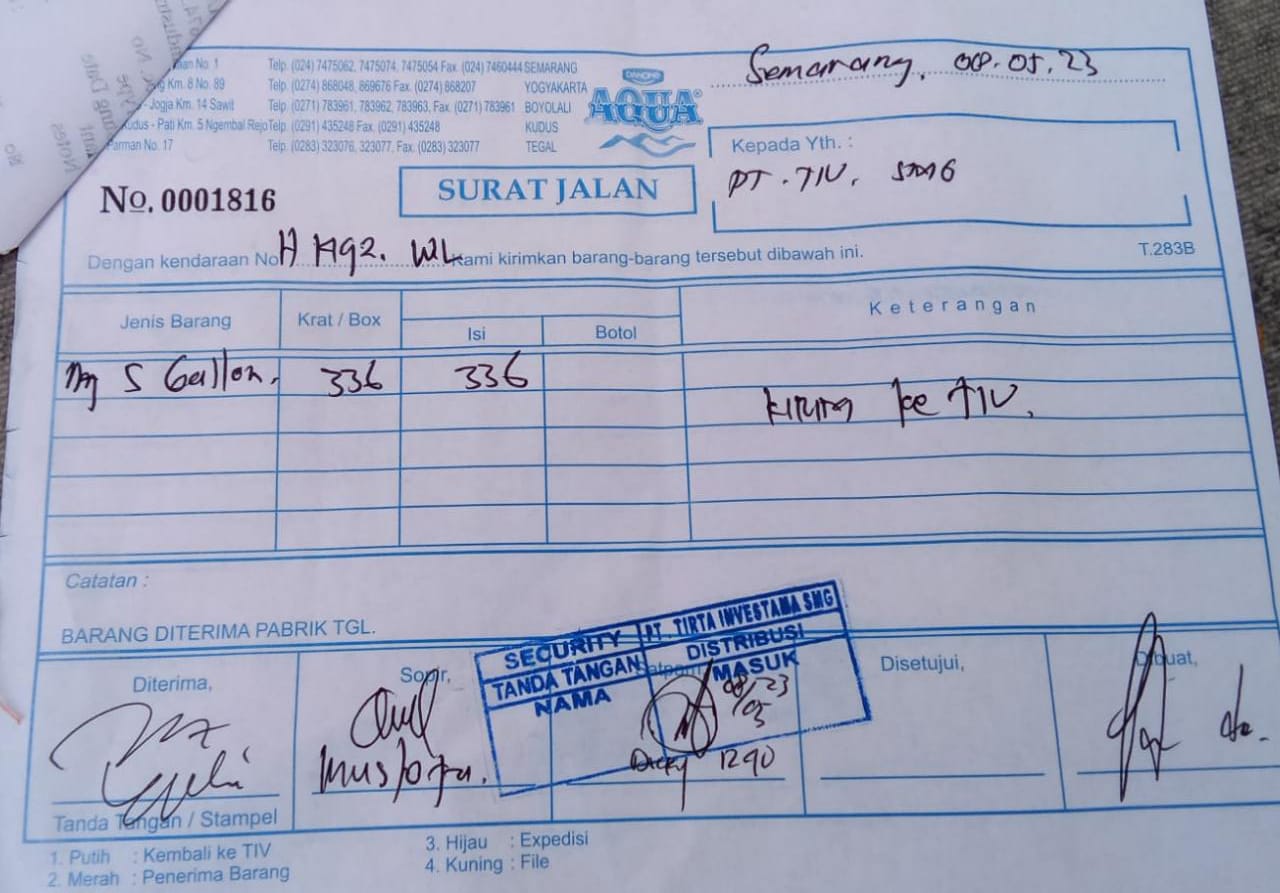 an No. 1 Telp. (024) 7475062, 7475074, 7475054 Fax. (024) 7460444 SEMARANG
Km. 8 No. 89 Telp. (0274) 868048, 869676 Fax. (0274) 868207 YOGYAKARTA
- Jogja Km. 14 Sawit Telp. (0271) 783961, 783962, 783963, Fax. (0271) 783961 BOYOLALI
Kudus - Pati Km. 5 Ngembal Rejo Telp. (0291) 435248 Fax. (0291) 435248 KUDUS
Parman No. 17 Telp. (0283) 323076, 323077, Fax. (0283) 323077 TEGAL
DANONE
AQUA
Semarang, 08.05.23
Kepada Yth. :
PT. TIV. SMG
No. 0001816
SURAT JALAN
Dengan kendaraan No H WL Kami kirimkan barang-barang tersebut dibawah ini.
T.283B
Jenis Barang Krat / Box Isi Botol Keterangan
5 Gallon. 336 336
kirim ke TIV.
Catatan :
BARANG DITERIMA PABRIK TGL.
SECURITY PT. TIRTA INVESTAMA SMG
TANDA TANGAN DISTRIBUSI
NAMA MASUK
08/23
05
Dicky 1290
Diterima,
Sopir,
Mustofa.
Satpam
Disetujui,
Dibuat,
Tanda Tangan / Stampel
1. Putih : Kembali ke TIV
2. Merah : Penerima Barang
3. Hijau : Expedisi
4. Kuning : File